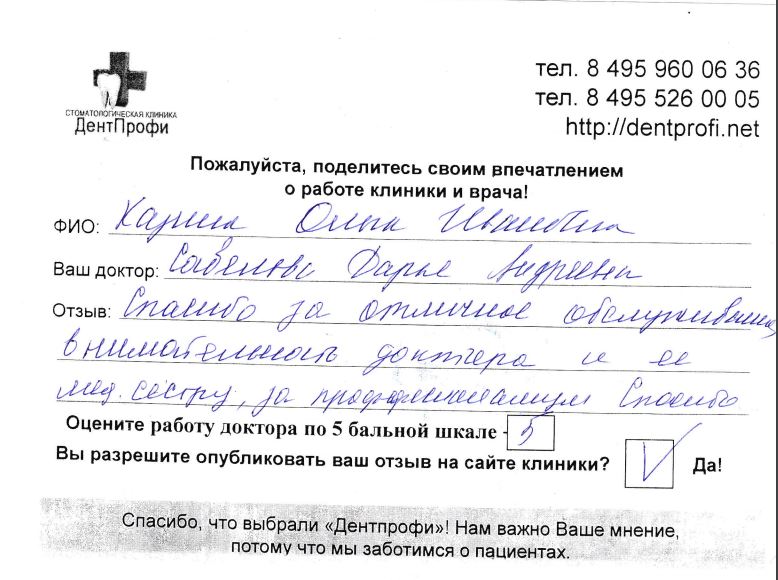 тел. 8 495 960 06 36
тел. 8 495 526 00 05
http://dentprofi.net
СТОМАТОЛОГИЧЕСКАЯ КЛИНИКА
ДентПрофи
Пожалуйста, поделитесь своим впечатлением
о работе клиники и врача!
ФИО: Ольга Ивановна
Ваш доктор: Дарья Андреевна
Отзыв: Спасибо за отличное обслуживание,
внимательность доктора и ее
мед. сестру, за профессионализм Спасибо
Оцените работу доктора по 5 бальной шкале - 5
Вы разрешите опубликовать ваш отзыв на сайте клиники? V Да!
Спасибо, что выбрали «Дентпрофи»! Нам важно Ваше мнение,
потому что мы заботимся о пациентах.